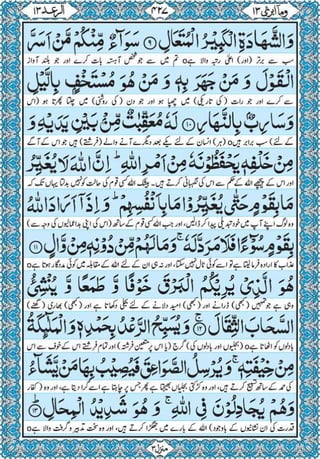 الرعد ١٣ ٤٢٧ وما ابرئ ١٣
وَالشَّهَادَةِ الْكَبِيْرُ الْمُتَعَالِ ﴿٩﴾ سَوَآءٌ مِّنْكُمْ مَّنْ اَسَرَّ
سب سے برتر (اور) اعلیٰ رتبہ والا ہے۝ تم میں سے جو شخص آہستہ بات کرے اور جو بلند آواز
الْقَوْلَ وَ مَنْ جَهَرَ بِهٖ وَ مَنْ هُوَ مُسْتَخْفٍۭ بِالَّيْلِ
سے کرے اور جو رات (کی تاریکی) میں چھپا ہو اور جو دن (کی روشنی) میں چلتا پھرتا ہو (اس
وَ سَارِبٌۢ بِالنَّهَارِ ﴿١٠﴾ لَهٗ مُعَقِّبٰتٌ مِّنْۢ بَيْنِ يَدَيْهِ وَ
کے لئے) سب برابر ہیں۝ (ہر) انسان کے لئے یکے بعد دیگرے آنے والے (فرشتے) ہیں جو اس کے آگے
مِنْ خَلْفِهٖ يَحْفَظُوْنَهٗ مِنْ اَمْرِ اللّٰهِ ؕ اِنَّ اللّٰهَ لَا يُغَيِّرُ
اور اس کے پیچھے اللہ کے حکم سے اس کی نگہبانی کرتے ہیں۔ بیشک اللہ کسی قوم کی حالت کو نہیں بدلتا یہاں تک کہ
مَا بِقَوْمٍ حَتّٰى يُغَيِّرُوْا مَا بِاَنْفُسِهِمْ ؕ وَ اِذَاۤ اَرَادَ اللّٰهُ
وہ لوگ اپنے آپ میں خود تبدیلی پیدا کر ڈالیں، اور جب اللہ کسی قوم کے ساتھ (اس کی اپنی بداعمالیوں کی وجہ سے)
بِقَوْمٍ سُوْٓءًا فَلَا مَرَدَّ لَهٗ ۚ وَ مَا لَهُمْ مِّنْ دُوْنِهٖ مِنْ وَّالٍ ﴿١١﴾
عذاب کا ارادہ فرما لیتا ہے تو اسے کوئی ٹال نہیں سکتا، اور نہ ہی ان کے لئے اللہ کے مقابلہ میں کوئی مددگار ہوتا ہے۝
هُوَ الَّذِيْ يُرِيْكُمُ الْبَرْقَ خَوْفًا وَّ طَمَعًا وَّ يُنْشِئُ
وہی ہے جو تمہیں (کبھی) ڈرانے اور (کبھی) امید دلانے کے لئے بجلی دکھاتا ہے اور (کبھی) بھاری (گھنے)
السَّحَابَ الثِّقَالَ ﴿١٢﴾ وَ يُسَبِّحُ الرَّعْدُ بِحَمْدِهٖ وَ الْمَلٰٓئِكَةُ
بادلوں کو اٹھاتا ہے۝ (بجلیوں اور بادلوں کی) گرج (یا اس پر متعین فرشتہ) اور تمام فرشتے اس کے خوف سے اس
مِنْ خِيْفَتِهٖ ۚ وَ يُرْسِلُ الصَّوَاعِقَ فَيُصِيْبُ بِهَا مَنْ يَّشَآءُ
کی حمد کے ساتھ تسبیح کرتے ہیں، اور وہ کڑکتی بجلیاں بھیجتا ہے پھر جس پر چاہتا ہے اسے گرا دیتا ہے، اور وہ (کفار
وَ هُمْ يُجَادِلُوْنَ فِي اللّٰهِ ۚ وَ هُوَ شَدِيْدُ الْمِحَالِ ﴿١٣﴾
قدرت کی ان نشانیوں کے باوجود) اللہ کے بارے میں جھگڑا کرتے ہیں، اور وہ سخت تدبیر و گرفت والا ہے۝
منزل ٣